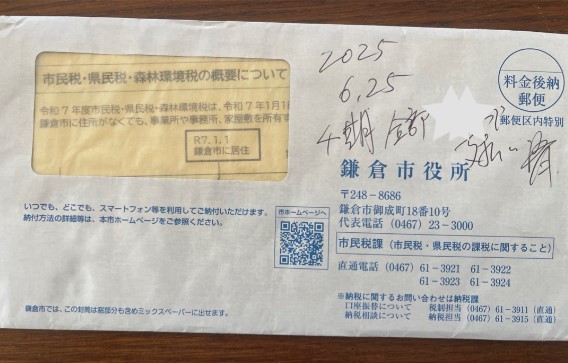 市民税・県民税・森林環境税の概要について
令和7年度市民税・県民税・森林環境税は、令和7年1月1日
鎌倉市に住所がなくても、事業所や事務所、家屋敷を所有す
R7.1.1
鎌倉市に居住
2025
6.25
4期 全部
で
支払い済
料金後納
郵便
郵便区内特別
鎌倉市役所
〒248－8686
鎌倉市御成町18番10号
代表電話（0467）23－3000
いつでも、どこでも、スマートフォン等を利用してご納付いただけます。
納付方法の詳細等は、本市ホームページをご参照ください。
市ホームページへ
市民税課（市民税・県民税の課税に関すること）
直通電話（0467）61－3921 61－3922
61－3923 61－3924
※納税に関するお問い合わせは納税課
口座振替について 税制担当（0467）61－3911（直通）
納税相談について 納税担当（0467）61－3915（直通）
鎌倉市では、この封筒は窓部分も含めミックスペーパーに出せます。